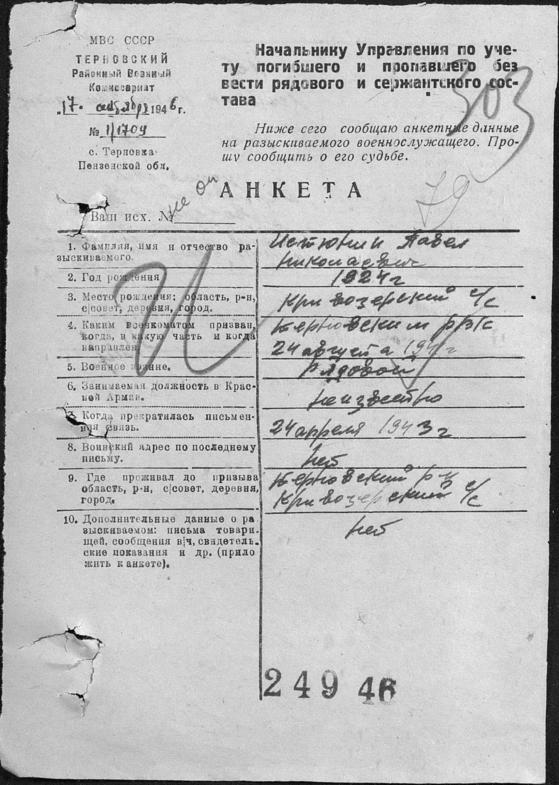 МВС СССР
ТЕРНОВСКИЙ
Районный Военный
Комиссариат
17. 1946 г.
№ 1/1709
с. Терновка
Пензенской обл.
Начальнику Управления по уче-
ту погибшего и пропавшего без
вести рядового и сержантского сос-
тава
303
Ниже сего сообщаю анкетные данные
на разыскиваемого военнослужащего. Про-
шу сообщить о его судьбе.
АНКЕТА
Ваш исх. №
1. Фамилия, имя и отчество ра-
зыскиваемого.
Истюнин Павел
Николаевич
2. Год рождения
1924 г
3. Место рождения: область, р-н,
с|совет, деревня, город.
Кривозерский с/с
4. Каким военкоматом призван,
когда, в какую часть и когда
направлен.
Терновским РВК
24 августа г
5. Военное звание.
Рядовой
6. Занимаемая должность в Крас-
ной Армии.
неизвестно
7. Когда прекратилась письмен-
ная связь.
24 апреля 1943 г
8. Воинский адрес по последнему
письму.
Нет
9. Где проживал до призыва
область, р-н, с|совет, деревня,
город.
Терновский р-н
Кривозерский с/с
10. Дополнительные данные о ра
зыскиваемом: письма товари-
щей, сообщения в|ч, свидетель-
ские показания и др. (прило
жить к анкете).
Нет
249 46